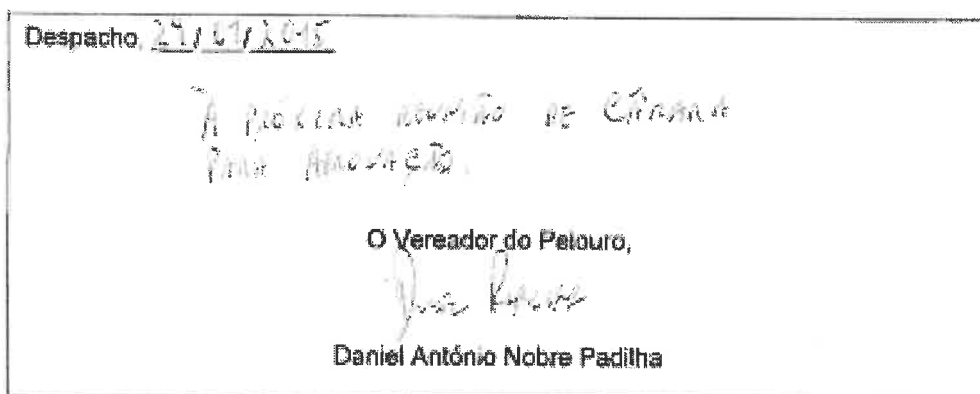 Despacho, 27/01/2015
À PRÓXIMA REUNIÃO DE CÂMARA
PARA APROVAÇÃO.
O Vereador do Pelouro,
Daniel António Nobre Padilha